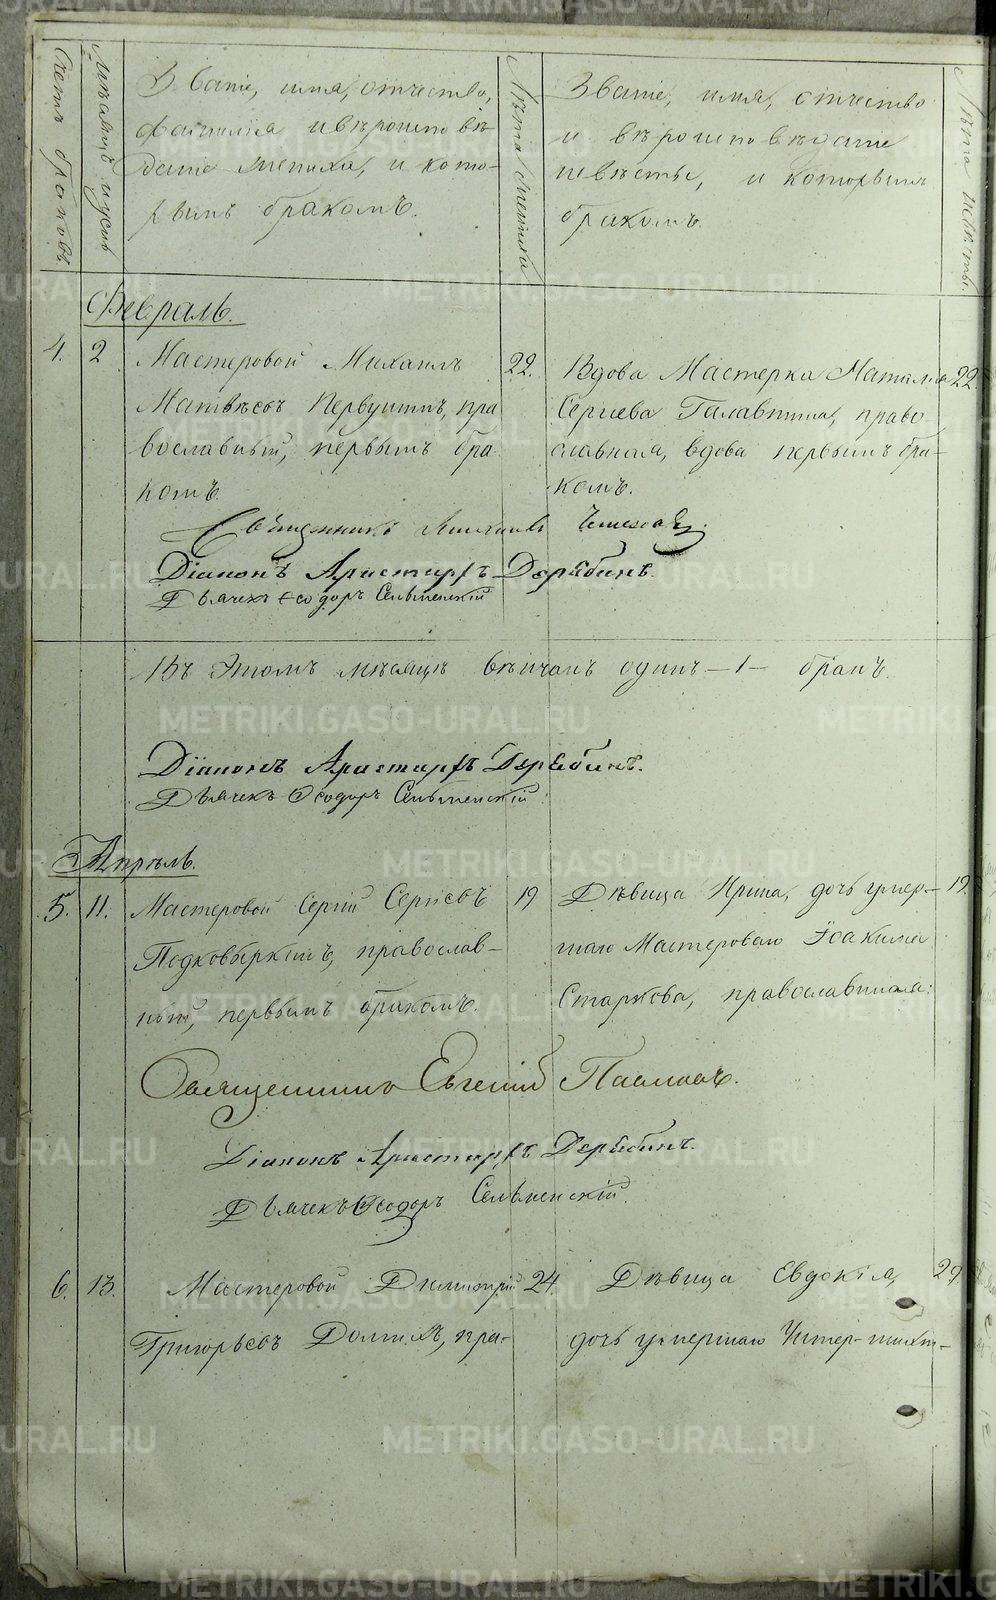 Счетъ браковъ
Мѣсяцъ и число
Званіе, имя, отчество,
фамилія и вѣроисповѣ-
даніе жениха, и кото-
рымъ бракомъ.
Лѣта жениха
Званіе, имя, отчество
и вѣроисповѣданіе
невѣсты, и которымъ
бракомъ.
Лѣта невѣсты.
Февраль.
4. 2 Мастеровой Михаилъ 22.
Матвѣевъ Первушинъ, пра
вославный, первымъ бра
комъ.
Вдова Мастерка Наталья 22
Сергиева Галавнина, право
славная, вдова первымъ бра-
комъ.
Священникъ
Діаконъ Аристархъ Дерябинъ.
Дьячекъ Ѳеодоръ Сельменскій
Въ этомъ мѣсяцѣ вѣнчанъ одинъ —1— бракъ.
Діаконъ Аристархъ Дерябинъ.
Дьячекъ Ѳеодоръ Сельменскій
Апрѣль.
5. 11. Мастеровой Сергій Сергіевъ 19
Подковыркинъ, православ-
ный, первымъ бракомъ.
Дѣвица Ирина, дочь умер- 19.
шаго Мастероваго Іоакима
Старкова, православная.
Священникъ Евгеній
Діаконъ Аристархъ Дерябинъ.
Дьячекъ Ѳеодоръ Сельменскій.
6. 13. Мастеровой Димитрій 24.
Григорьевъ пра-
Дѣвица Евдокія, 29.
дочь умершаго Унтер-шихт-
METRIKI.GASO-URAL.RU